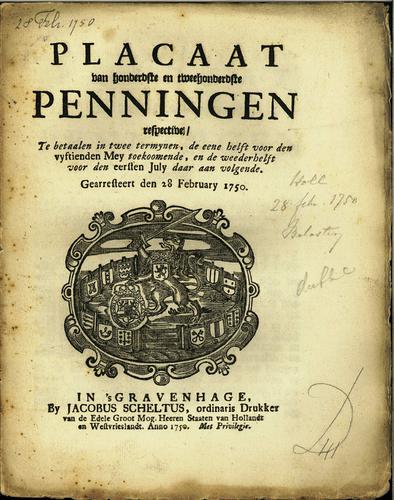 28 Feb. 1750
PLACAAT
van honderdste en tweehonderdste
PENNINGEN
respective/
Te betaalen in twee termynen, de eene helft voor den
vyftienden Mey toekoomende, en de weederhelft
voor den eersten July daar aan volgende.
Gearresteert den 28 February 1750.
Holl
28 feb. 1750
IN 'sGRAVENHAGE,
By JACOBUS SCHELTUS, ordinaris Drukker
van de Edele Groot Mog. Heeren Staaten van Hollandt
en Westvrieslandt. Anno 1750. Met Privilegie.